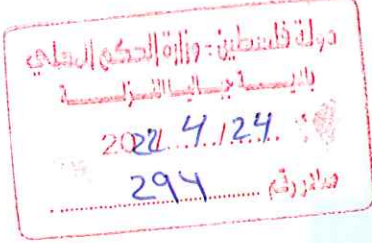 دولة فلسطين - وزارة الحكم المحلي
بلديـــة جبـاليـا النـــزلـــة
2022/4/24
صادر رقم 294